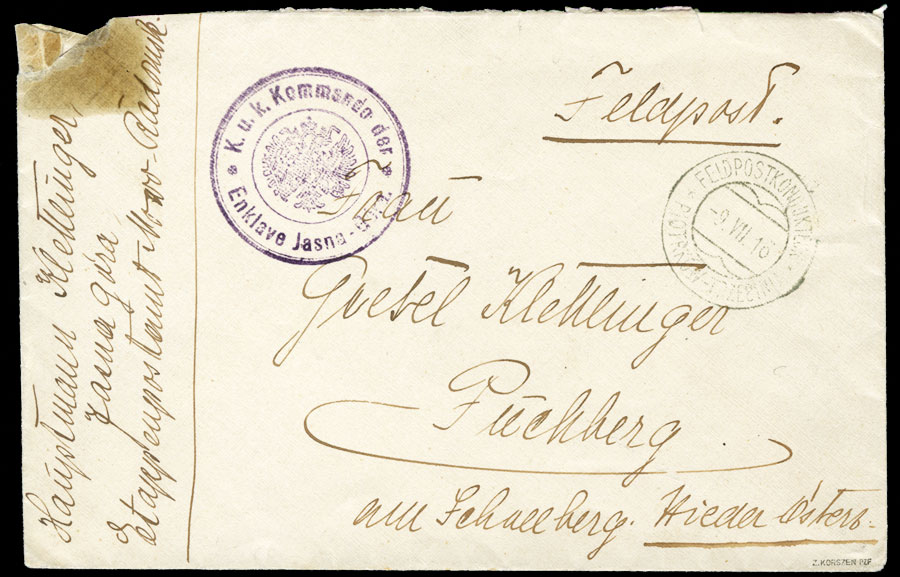 Hauptmann Klettinger
Jasna góra
Etappenpostamt Nowo-Radomsk.
* K. u. k. Kommando der *
Enklave Jasna-góra.
Feldpost.
FELDPOSTKONDUKTEUR
-9. VII. 16
Frau
Gretel Klettinger
Puchberg
am Schneeberg. Nieder Österr.
Z. KORSZEŃ PZF